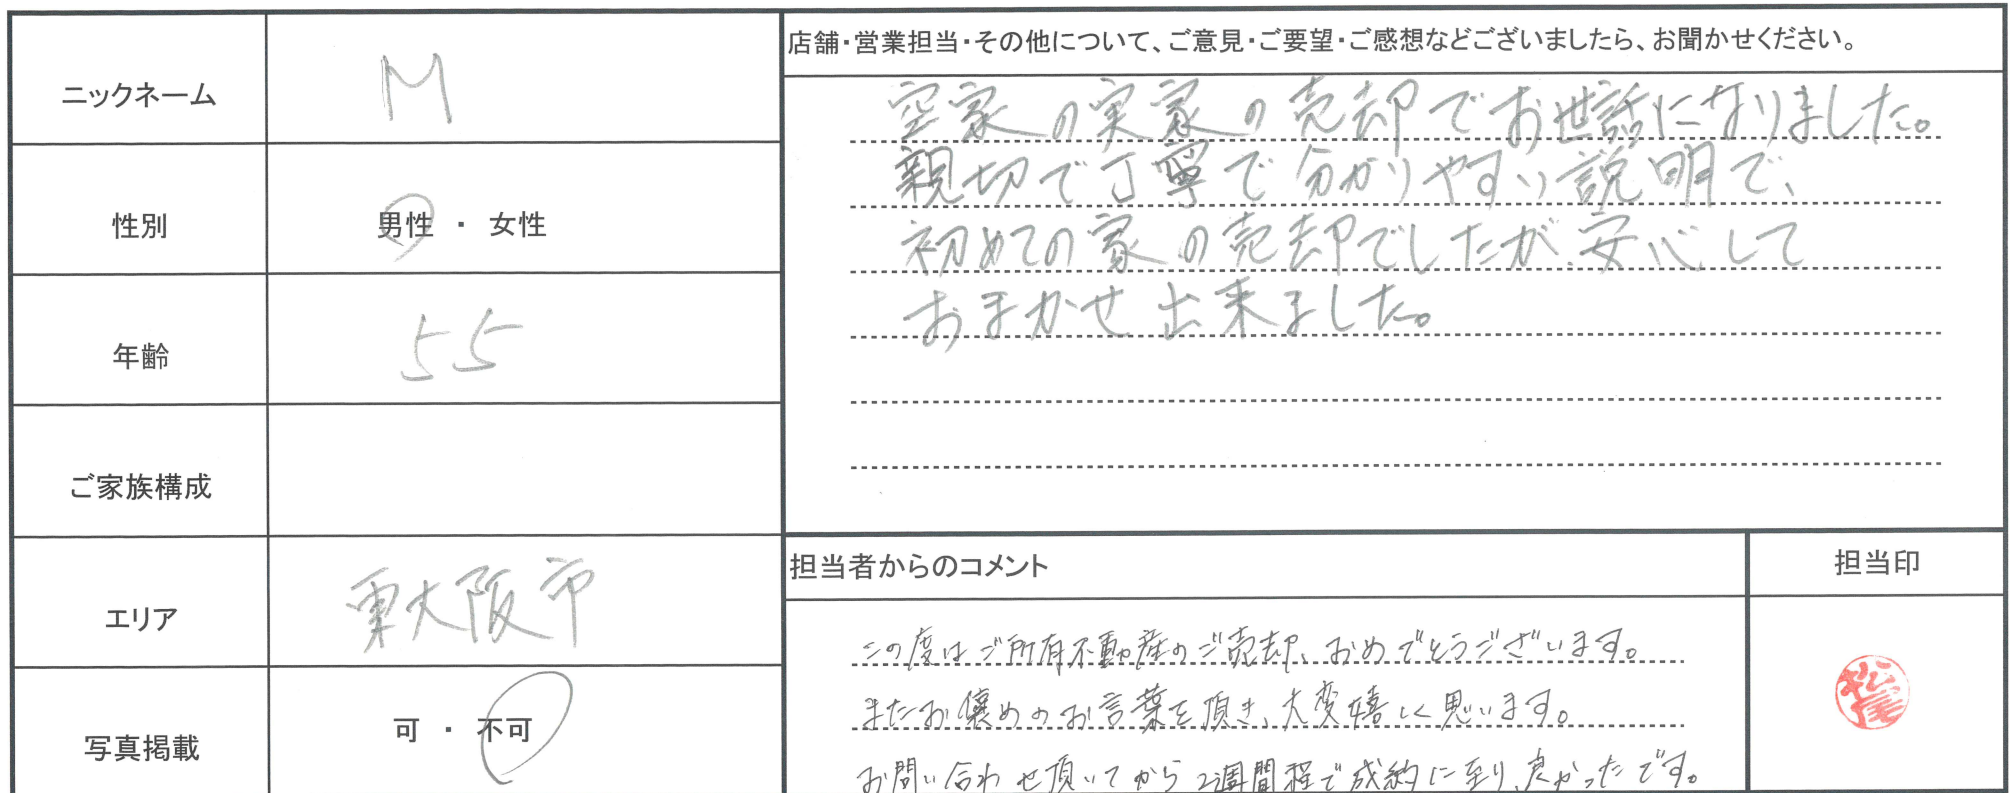 ニックネーム
M
性別
男性 ・ 女性
年齢
55
ご家族構成
エリア
東大阪市
写真掲載
可 ・ 不可
店舗・営業担当・その他について、ご意見・ご要望・ご感想などございましたら、お聞かせください。
空家の実家の売却でお世話になりました。
親切で丁寧で分かりやすい説明で、
初めての家の売却でしたが、安心して
おまかせ出来ました。
担当者からのコメント
この度はご所有不動産のご売却、おめでとうございます。
またお褒めのお言葉を頂き、大変嬉しく思います。
お問い合わせ頂いてから2週間程で成約に至り、良かったです。
担当印
松尾